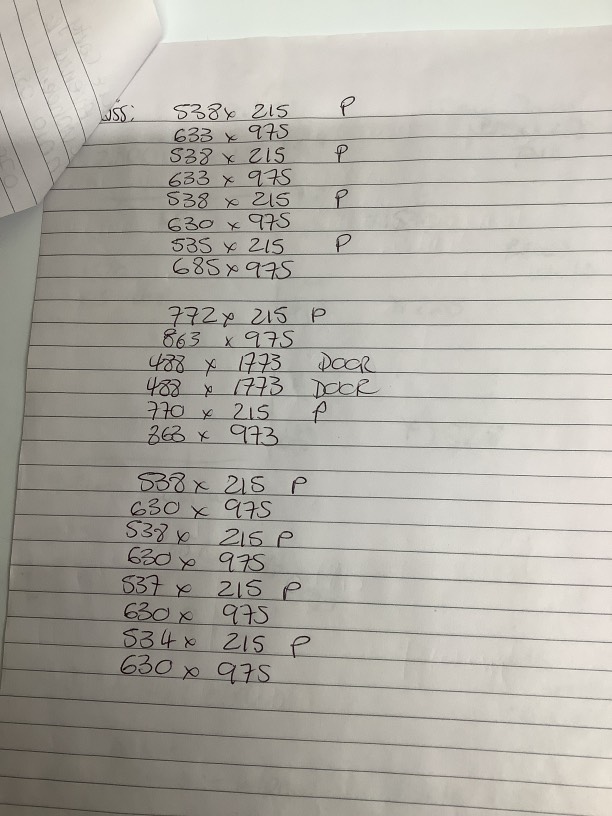 538 x 215 P
633 x 975
538 x 215 P
633 x 975
538 x 215 P
630 x 975
535 x 215 P
685 x 975
772 x 215 P
863 x 975
488 x 1773 DOOR
488 x 1773 DOOR
770 x 215 P
863 x 973
538 x 215 P
630 x 975
538 x 215 P
630 x 975
537 x 215 P
630 x 975
534 x 215 P
630 x 975